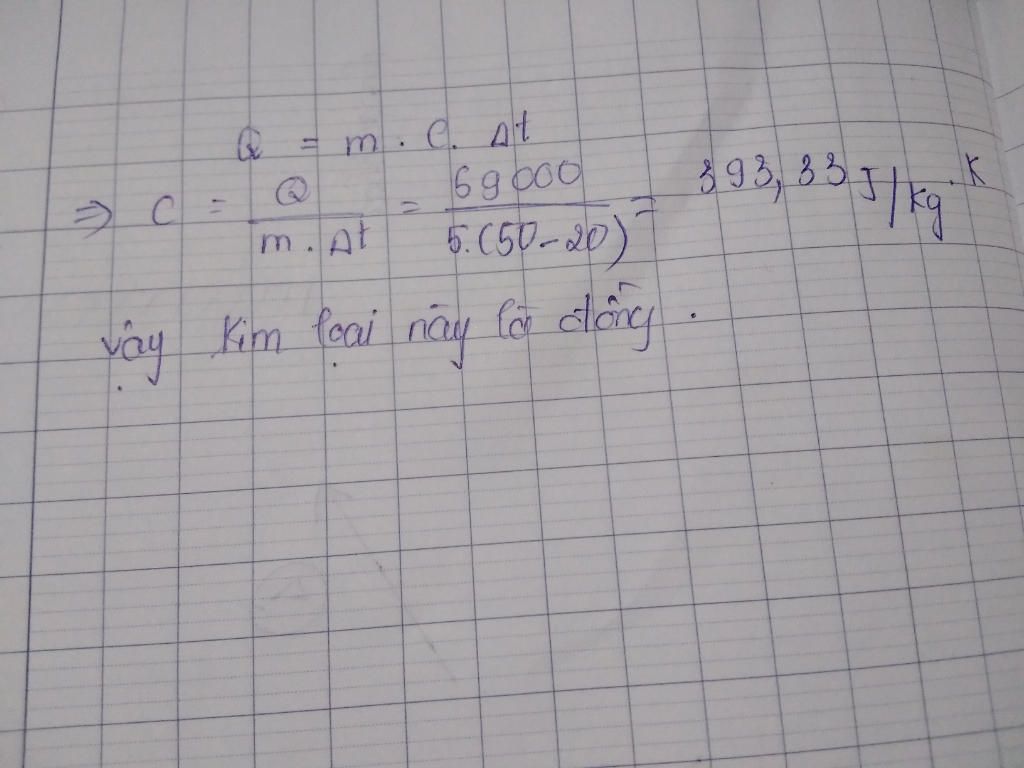 Q = m . C. Δt
⇒ C = Q / m . Δt = 59000 / 5.(50-20) = 393,33 J/kg.K
vậy kim loại này là đồng.